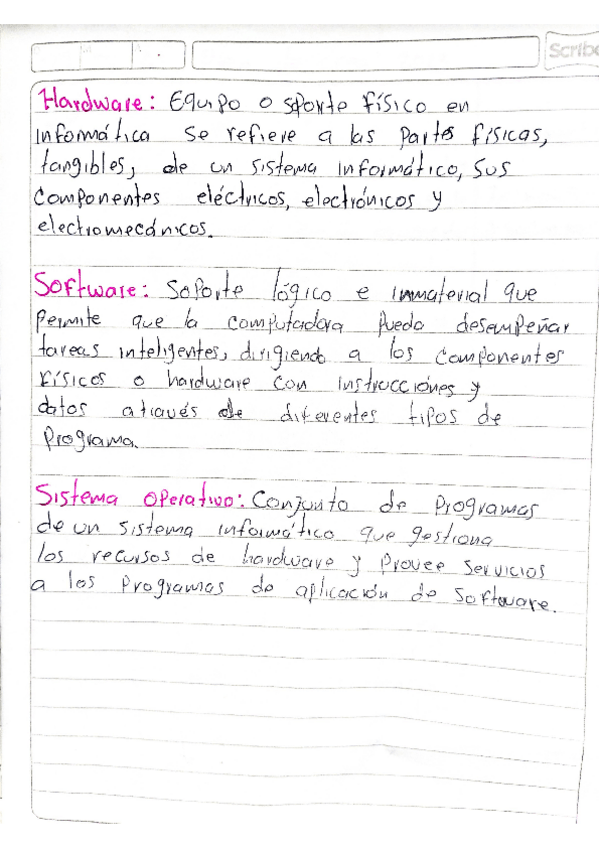 Scribe
Hardware: Equipo o soporte físico en
informática se refiere a las partes físicas,
tangibles, de un sistema informático, sus
componentes eléctricos, electrónicos y
electromecánicos.
Software: Soporte lógico e inmaterial que
permite que la computadora pueda desempeñar
tareas inteligentes, dirigiendo a los componentes
físicos o hardware con instrucciones y
datos através de diferentes tipos de
programa.
Sistema Operativo: Conjunto de Programas
de un sistema informático que gestiona
los recursos de hardware y Provee servicios
a los Programas de aplicación de Software.